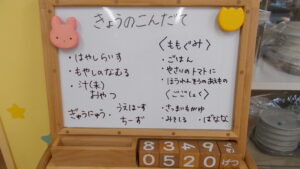 きょうのこんだて
・はやしらいす
・もやしのなむる
・汁(末)
おやつ
ぎゅうにゅう・
うえはーす
ちーず
〈ももぐみ〉
・ごはん
・やさいのトマトに
・ほうれんそうのおひたし
〈ごごしょく〉
・さつまいもがゆ
・みそしる
・ばなな
8 3 4 9
0 5 2 0 げつ